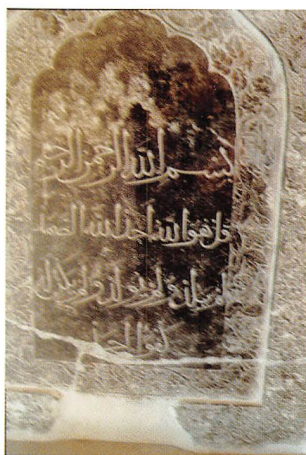 بسم الله الرحمن الرحيم
قل هو الله احد الله الصمد
لم يلد ولم يولد ولم يكن له
كفوا احد